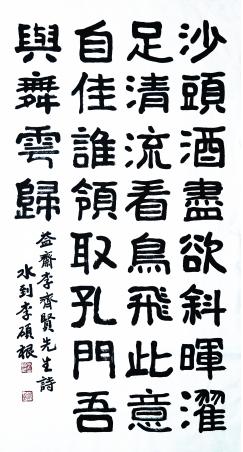 沙頭酒盡欲斜暉濯
足清流看鳥飛此意
自佳誰領取孔門吾
與舞雩歸
益齋李齊賢先生詩
水到李碩根